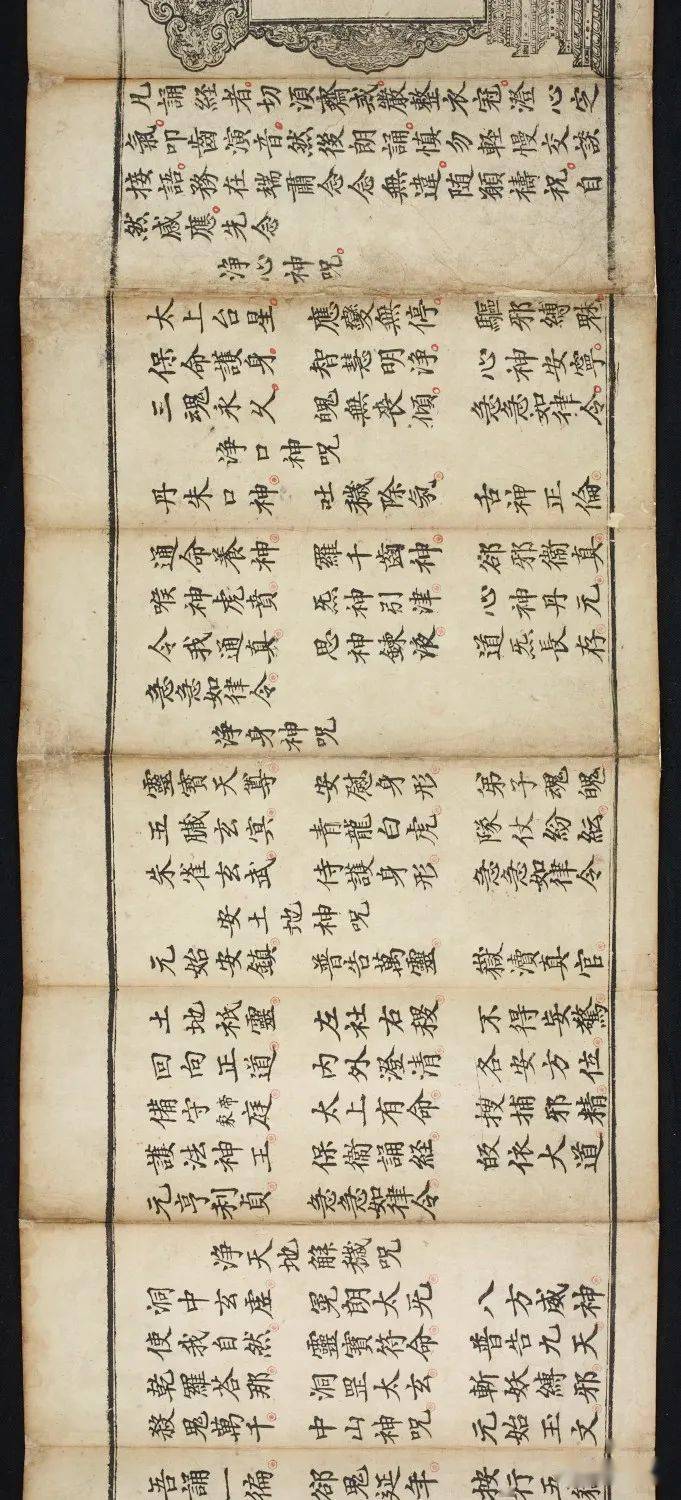 凡誦經者切湏齋戒嚴整衣冠澄心定
氣叩齒演音然後朗誦慎勿輕慢交談
接語務在端肅念念無違随願禱祝自
然感應先念
淨心神呪
太上台星 應變無停 驅邪縛鬽
保命護身 智慧明淨 心神安寧
三魂永久 魄無丧傾 急急如律令
淨口神呪
丹朱口神 吐穢除氛 舌神正倫
通命養神 羅千齒神 郤邪衛真
喉神虎賁 炁神引津 心神丹元
令我通真 思神鍊液 道炁長存
急急如律令
淨身神呪
靈寶天尊 安慰身形 弟子魂魄
五臟玄冥 青龍白虎 隊仗紛紜
朱雀玄武 侍護身形 急急如律令
安土地神呪
元始安鎮 普告萬靈 嶽瀆真官
土地祇靈 左社右稷 不得妄驚
回向正道 内外澄清 各安方位
備守帝家庭 太上有命 搜捕邪精
護法神王 保衛誦經 皈依大道
元亨利貞 急急如律令
淨天地解穢呪
洞中玄虛 晃朗太元 八方威神
使我自然 靈寶符命 普告九天
乾羅荅那 洞罡太玄 斬妖縛邪
殺鬼萬千 中山神呪 元始玉文
吾誦一徧 郤鬼延年 按行五